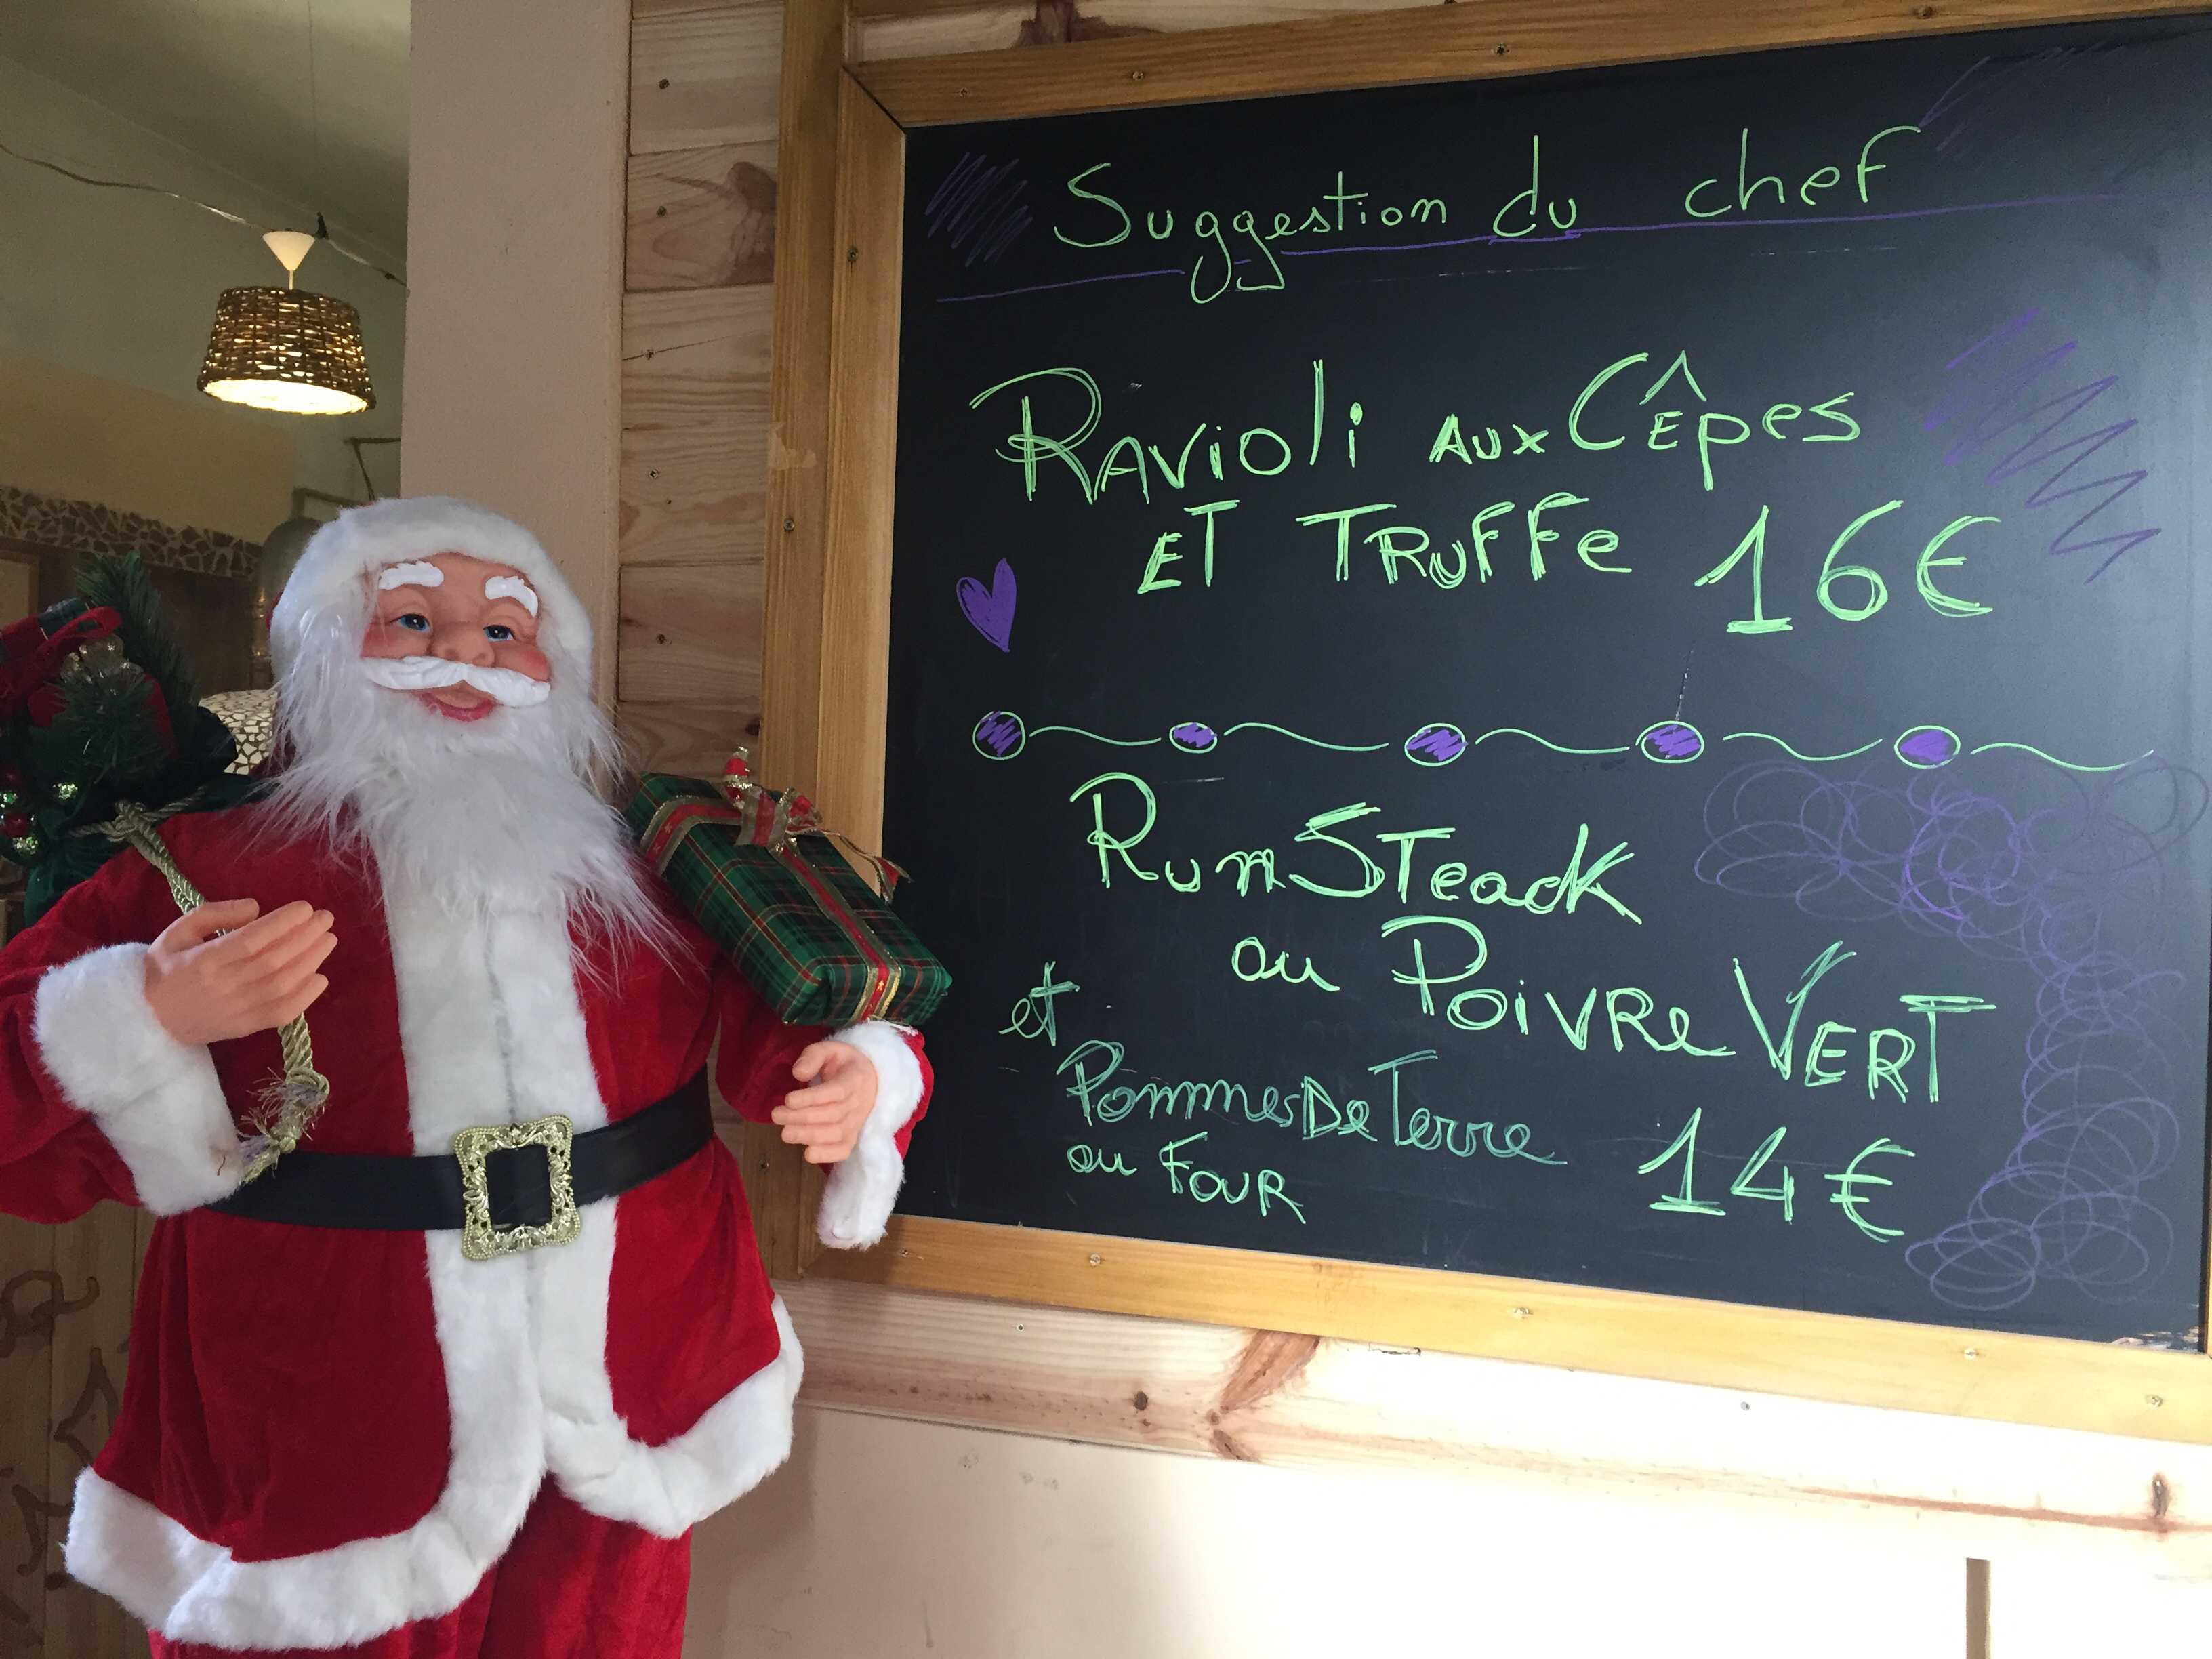 Suggestion du chef
RAVioli AUX CÊpes
ET TRUFFe 16€
RumSTeack
au PoivRe VERT
et
PommesDeTerre
au FOUR 14€